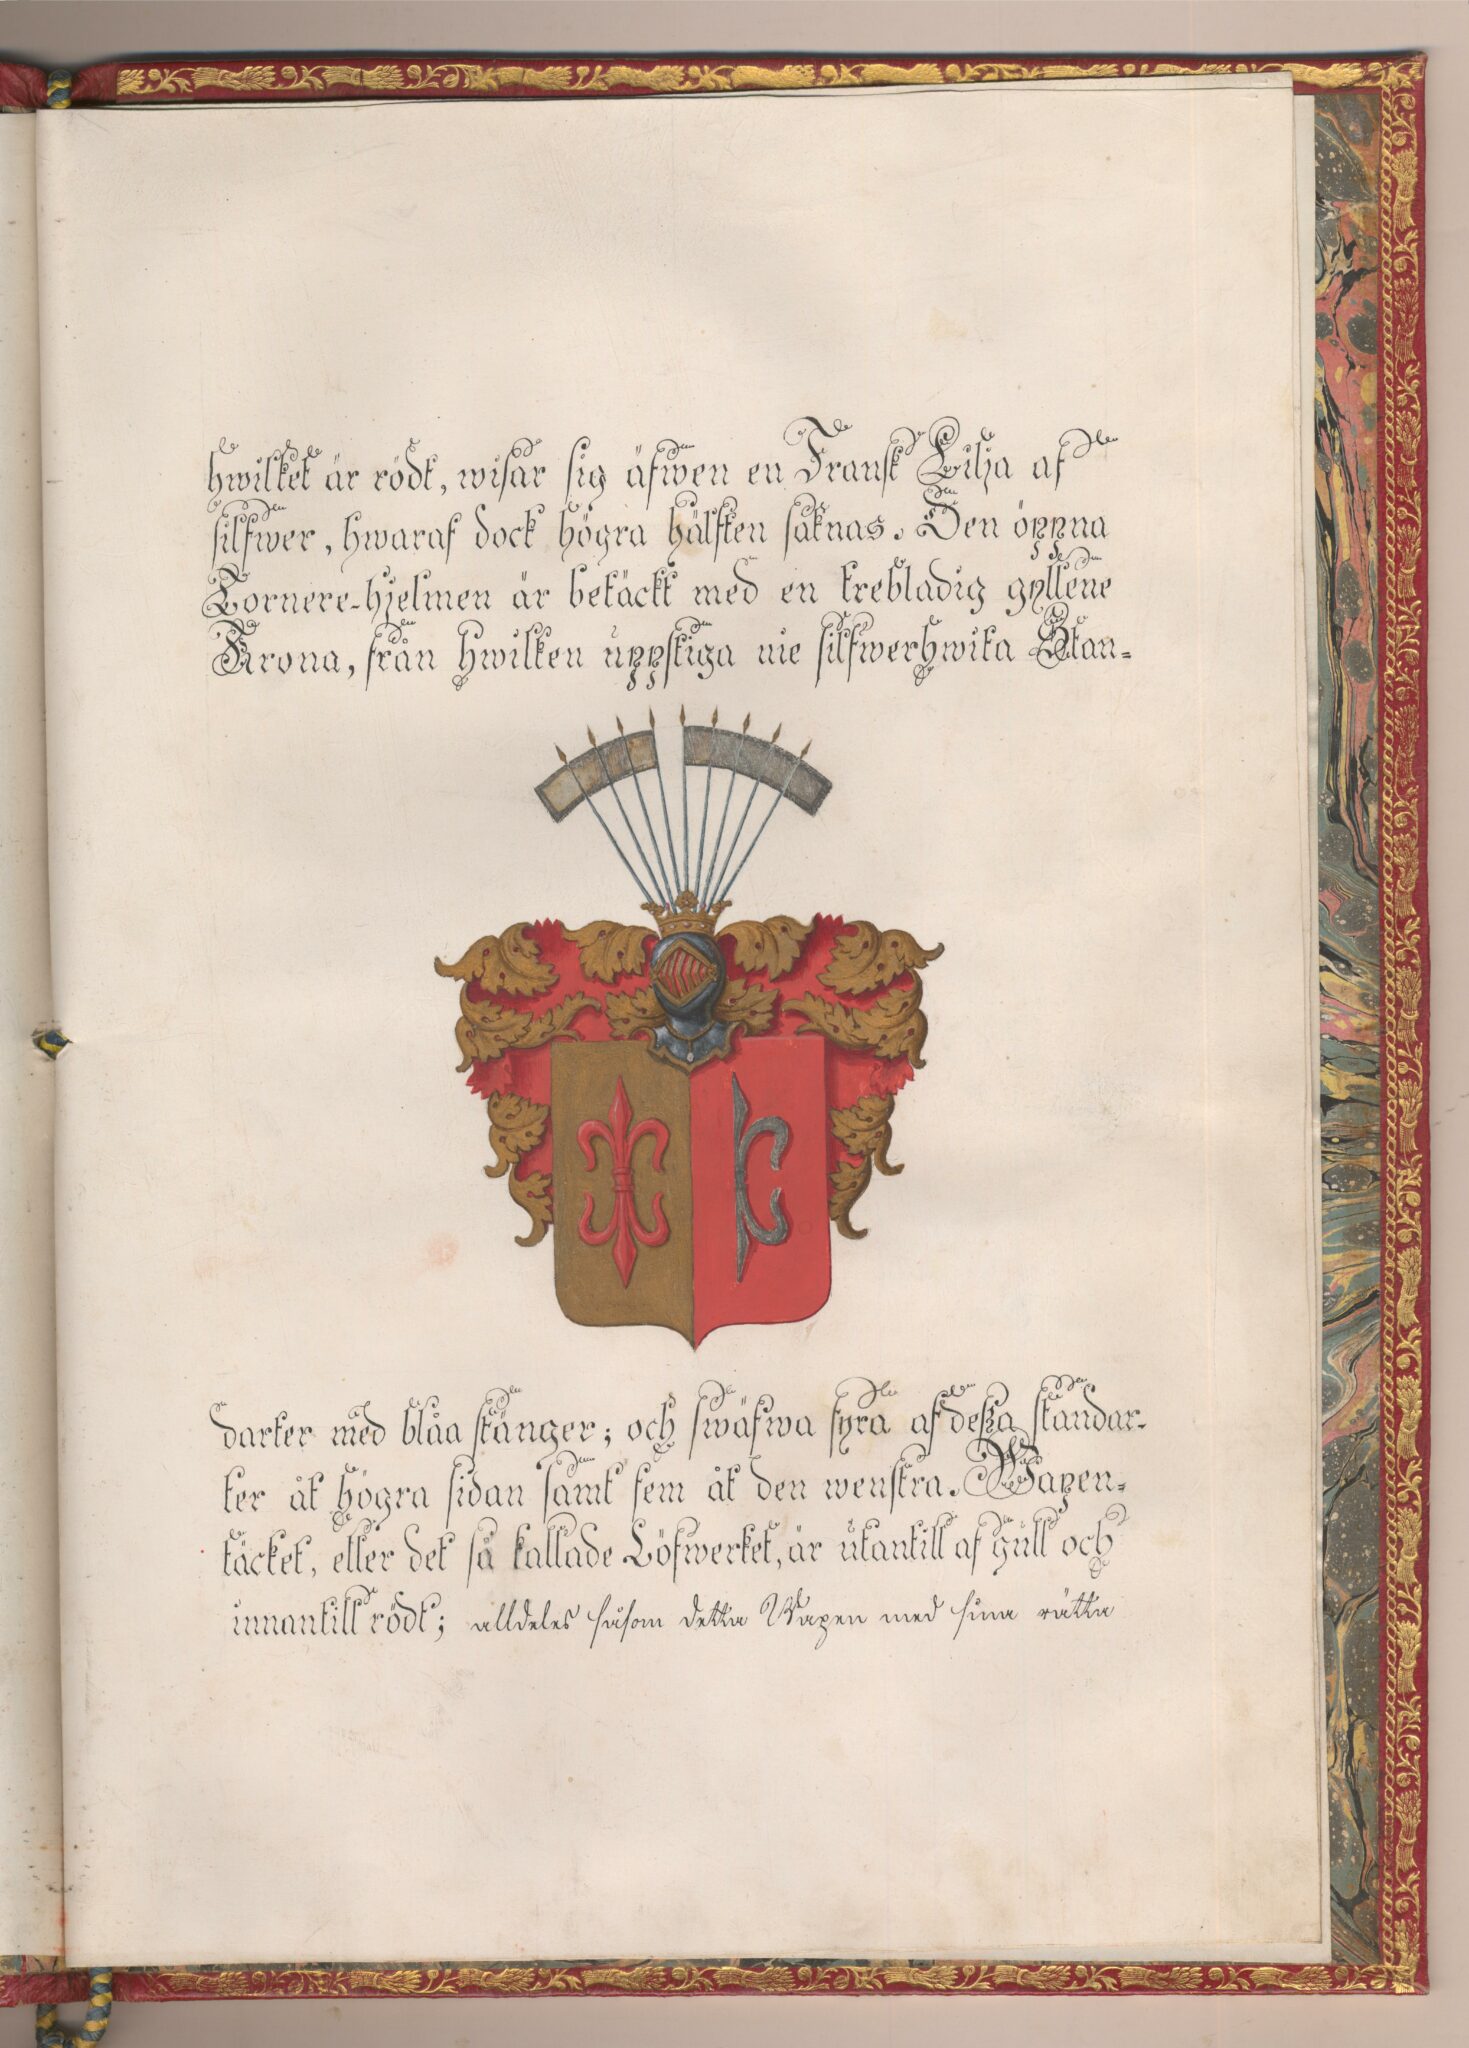 hwilket är rödt, wisar sig äfwen en Fransk Lilja af
silfwer, hwaraf dock högra hälften saknas. Den öppna
Tornere-hjelmen är betäckt med en trebladig gyllene
Krona, från hwilken uppstiga nie silfwerhwita Stan-
darter med blåa stänger; och swäfwa fyra af desza standar-
ter åt högra sidan samt fem åt den wenstra. Wapen-
täcket, eller det så kallade Löfwerket, är utantill af gull och
innantill rödt; alldeles såsom detta Wapen med sina rätta